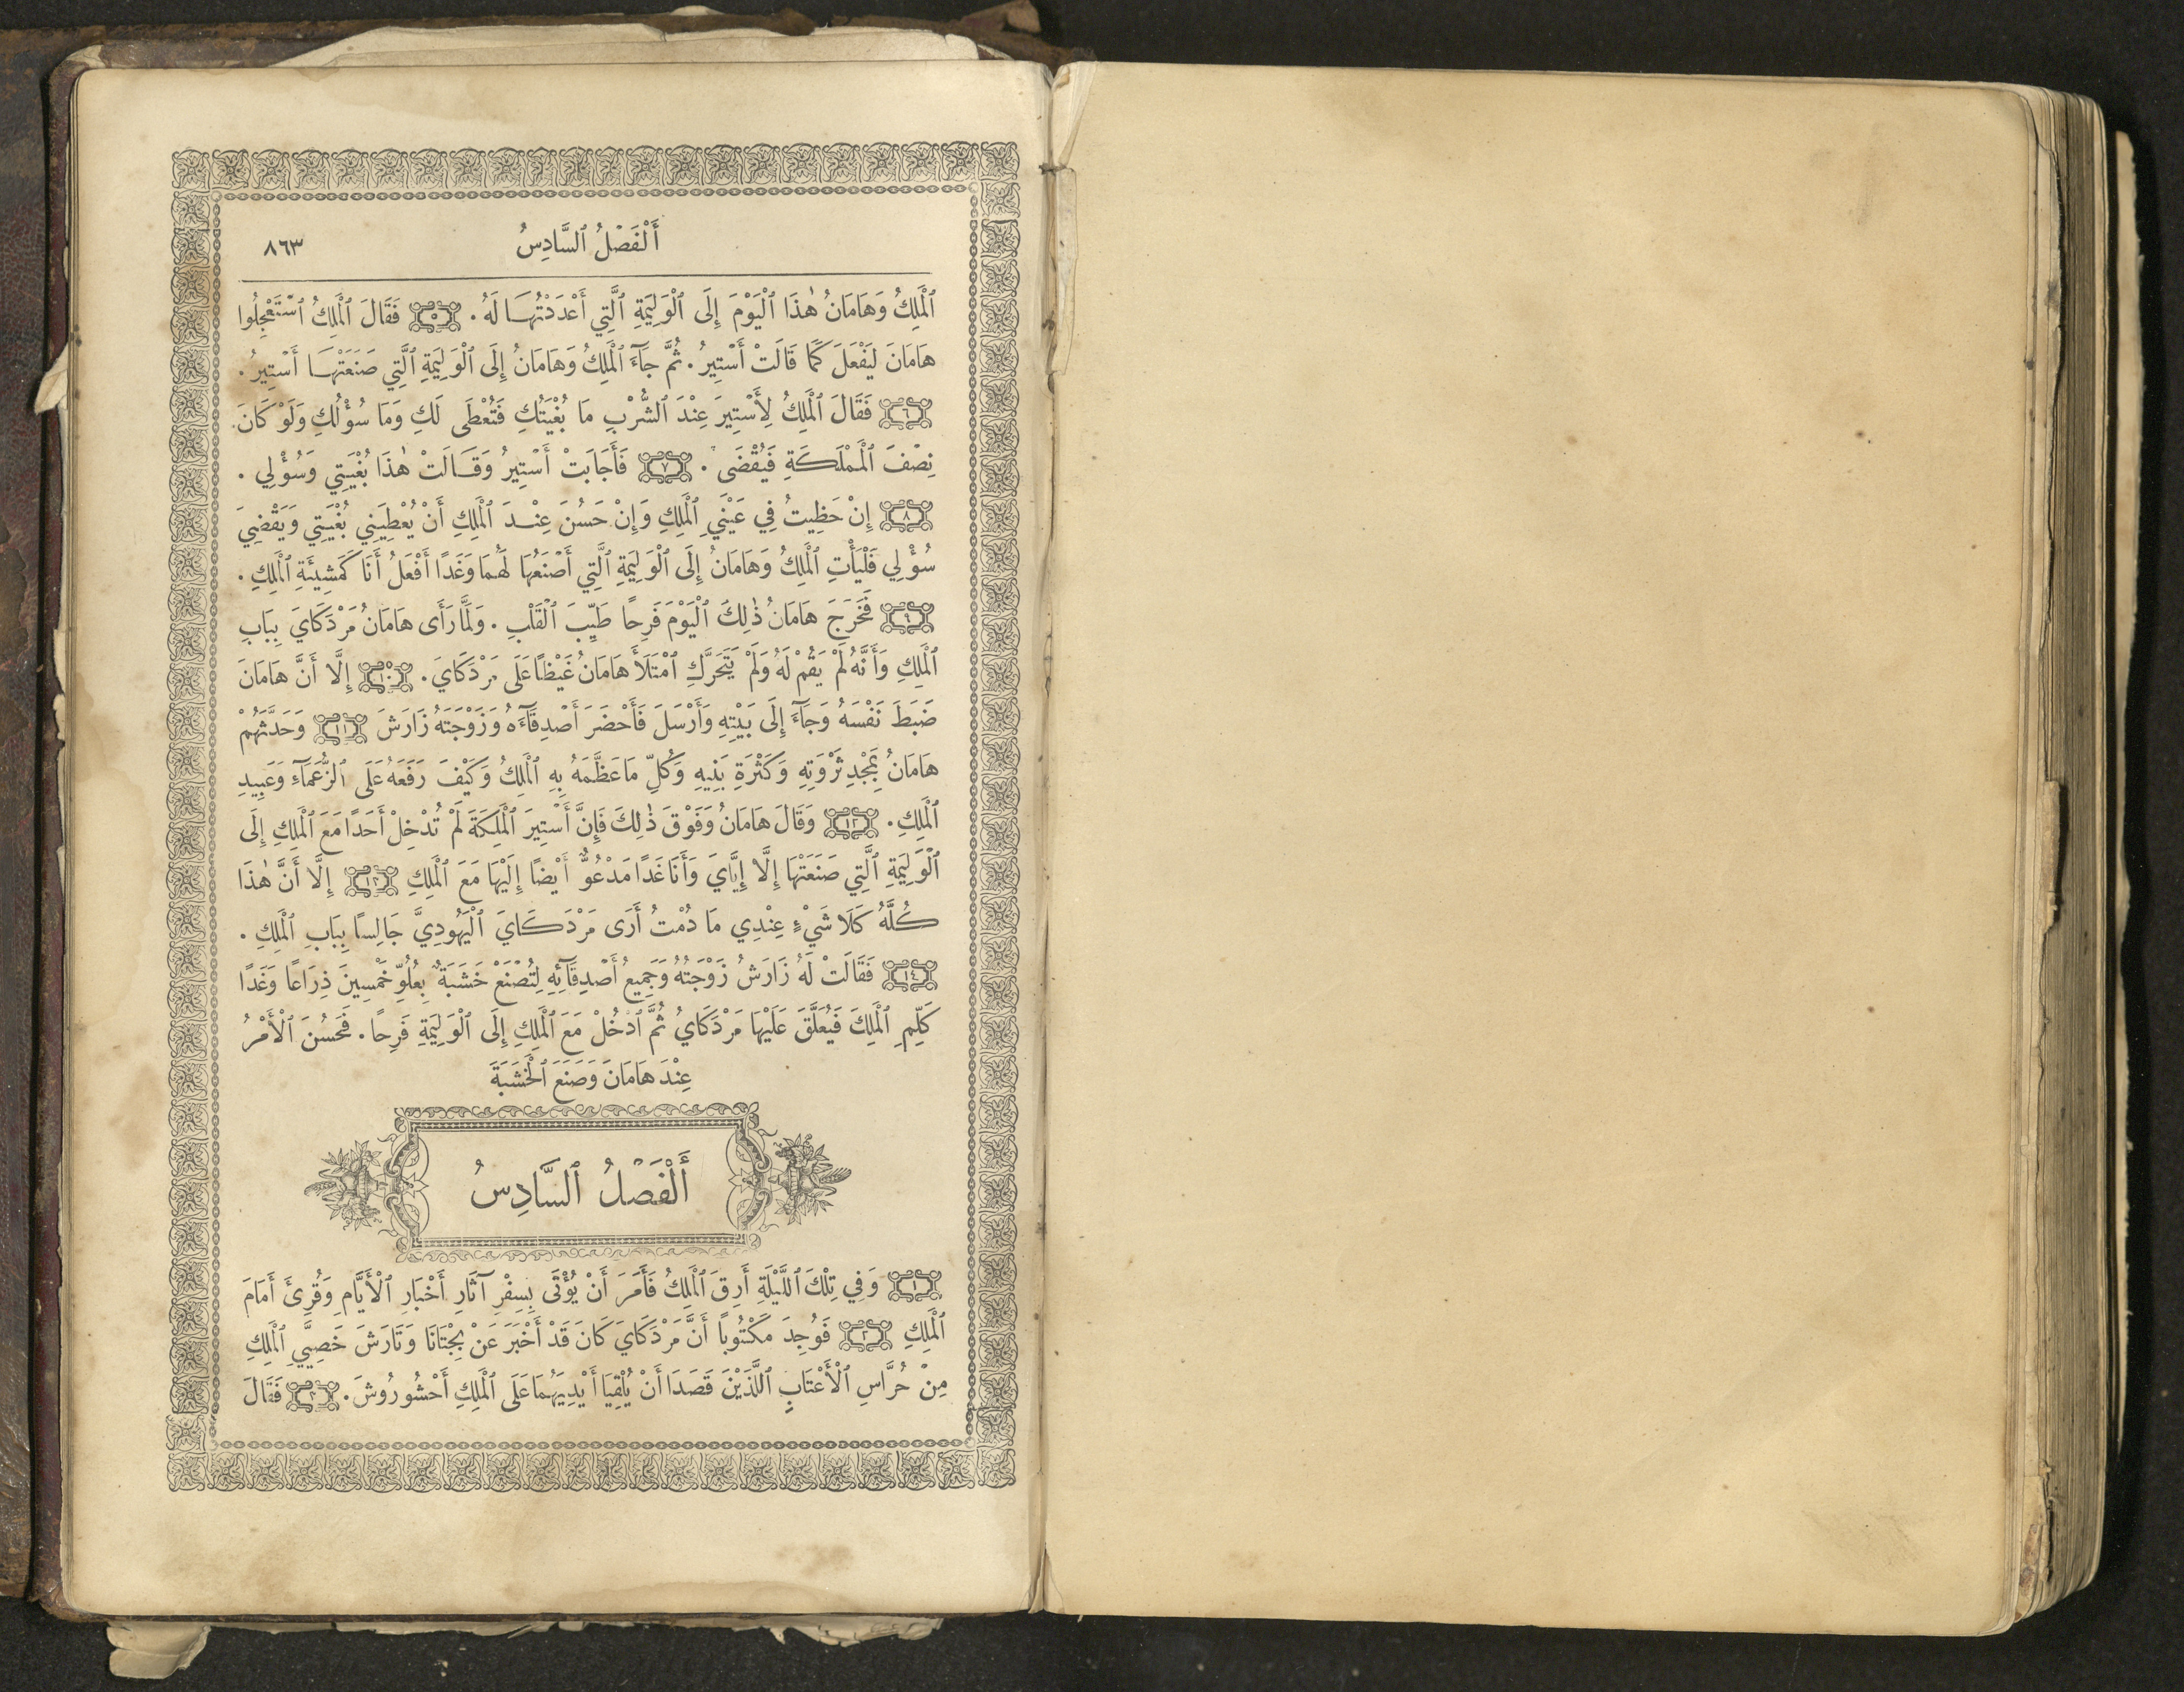 أَلْفَصْلُ ٱلسَّادِسُ ٨٦٣
ٱلْمَلِكُ وَهَامَانُ هٰذَا ٱلْيَوْمَ إِلَى ٱلْوَلِيمَةِ ٱلَّتِي أَعْدَدْتُهَا لَهُ . ٥ فَقَالَ ٱلْمَلِكُ ٱسْتَعْجِلُوا
هَامَانَ لِيَفْعَلَ كَمَا قَالَتْ أَسْتِيرُ . ثُمَّ جَآءَ ٱلْمَلِكُ وَهَامَانُ إِلَى ٱلْوَلِيمَةِ ٱلَّتِي صَنَعَتْهَا أَسْتِيرُ .
٦ فَقَالَ ٱلْمَلِكُ لِأَسْتِيرَ عِنْدَ ٱلشُّرْبِ مَا بُغْيَتُكِ فَتُعْطَى لَكِ وَمَا سُؤْلُكِ وَلَوْ كَانَ
نِصْفَ ٱلْمَمْلَكَةِ فَيُقْضَى . ٧ فَأَجَابَتْ أَسْتِيرُ وَقَالَتْ هٰذَا بُغْيَتِي وَسُؤْلِي .
٨ إِنْ حَظِيتُ فِي عَيْنَيِ ٱلْمَلِكِ وَإِنْ حَسُنَ عِنْدَ ٱلْمَلِكِ أَنْ يُعْطِيَنِي بُغْيَتِي وَيَقْضِيَ
سُؤْلِي فَلْيَأْتِ ٱلْمَلِكُ وَهَامَانُ إِلَى ٱلْوَلِيمَةِ ٱلَّتِي أَصْنَعُهَا لَهُمَا وَغَدًا أَفْعَلُ أَنَا كَمَشِيئَةِ ٱلْمَلِكِ .
٩ فَخَرَجَ هَامَانُ ذٰلِكَ ٱلْيَوْمَ فَرِحًا طَيِّبَ ٱلْقَلْبِ . وَلَمَّا رَأَى هَامَانُ مَرْدَكَايَ بِبَابِ
ٱلْمَلِكِ وَأَنَّهُ لَمْ يَقُمْ لَهُ وَلَمْ يَتَحَرَّكِ ٱمْتَلَأَ هَامَانُ غَيْظًا عَلَى مَرْدَكَايَ . ١٠ إِلَّا أَنَّ هَامَانَ
ضَبَطَ نَفْسَهُ وَجَآءَ إِلَى بَيْتِهِ وَأَرْسَلَ فَأَحْضَرَ أَصْدِقَآءَهُ وَزَوْجَتَهُ زَارَشَ ١١ وَحَدَّثَهُمْ
هَامَانُ بِمَجْدِ ثَرْوَتِهِ وَكَثْرَةِ بَنِيهِ وَكُلِّ مَا عَظَّمَهُ بِهِ ٱلْمَلِكُ وَكَيْفَ رَفَعَهُ عَلَى ٱلزُّعَمَآءِ وَعَبِيدِ
ٱلْمَلِكِ . ١٢ وَقَالَ هَامَانُ وَفَوْقَ ذٰلِكَ فَإِنَّ أَسْتِيرَ ٱلْمَلِكَةَ لَمْ تُدْخِلْ أَحَدًا مَعَ ٱلْمَلِكِ إِلَى
ٱلْوَلِيمَةِ ٱلَّتِي صَنَعَتْهَا إِلَّا إِيَّايَ وَأَنَا غَدًا مَدْعُوٌّ أَيْضًا إِلَيْهَا مَعَ ٱلْمَلِكِ ١٣ إِلَّا أَنَّ هٰذَا
كُلَّهُ كَلَا شَيْءٍ عِنْدِي مَا دُمْتُ أَرَى مَرْدَكَايَ ٱلْيَهُودِيَّ جَالِسًا بِبَابِ ٱلْمَلِكِ .
١٤ فَقَالَتْ لَهُ زَارَشُ زَوْجَتُهُ وَجَمِيعُ أَصْدِقَآئِهِ لِتُصْنَعْ خَشَبَةٌ بِعُلُوِّ خَمْسِينَ ذِرَاعًا وَغَدًا
كَلِّمِ ٱلْمَلِكَ فَيُعَلَّقَ عَلَيْهَا مَرْدَكَايُ ثُمَّ ٱدْخُلْ مَعَ ٱلْمَلِكِ إِلَى ٱلْوَلِيمَةِ فَرِحًا . فَحَسُنَ ٱلْأَمْرُ
عِنْدَ هَامَانَ وَصَنَعَ ٱلْخَشَبَةَ
أَلْفَصْلُ ٱلسَّادِسُ
١ وَفِي تِلْكَ ٱللَّيْلَةِ أَرِقَ ٱلْمَلِكُ فَأَمَرَ أَنْ يُؤْتَى بِسِفْرِ آثَارِ أَخْبَارِ ٱلْأَيَّامِ وَقُرِئَ أَمَامَ
ٱلْمَلِكِ ٢ فَوُجِدَ مَكْتُوبًا أَنَّ مَرْدَكَايَ كَانَ قَدْ أَخْبَرَ عَنْ بِجْتَانَا وَتَارَشَ خَصِيَّيِ ٱلْمَلِكِ
مِنْ حُرَّاسِ ٱلْأَعْتَابِ ٱللَّذَيْنَ قَصَدَا أَنْ يُلْقِيَا أَيْدِيَهُمَا عَلَى ٱلْمَلِكِ أَحْشُورُوشَ . ٣ فَقَالَ